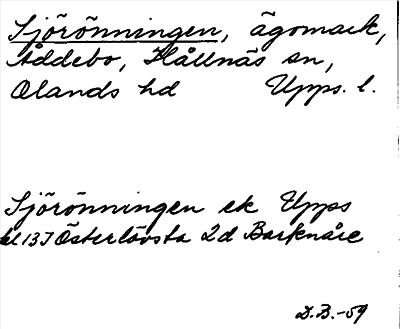 Sjörönningen, ägomark,
Åddebo, Hållnäs sn,
Olands hd Upps. l.
Sjörönningen ek Upps
bl 13 I Österlövsta 2d Barknåre
D.B.-59